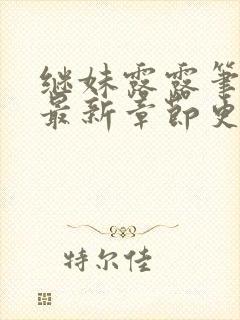 继妹露露笔
最新章节史
特尔佳